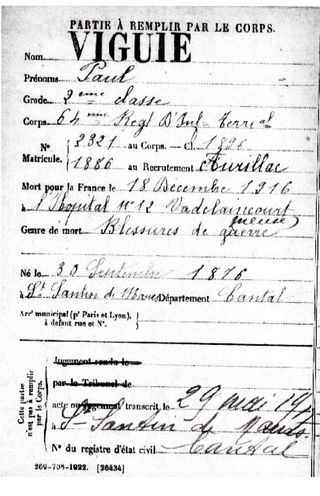 PARTIE À REMPLIR PAR LE CORPS.
Nom VIGUIE
Prénoms Paul
Grade 2eme classe
Corps 64eme Regt D'Inf-Terral
N° 2321 au Corps. — Cl. 1896
Matricule. 1886 au Recrutement Aurillac
Mort pour la France le 18 Décembre 1916
à l'Hôpital N°12 Vadelaincourt
(Meuse)
Genre de mort Blessures de guerre
Né le 30 Septembre 1876
à St Santin de Maurs Département Cantal
Arrt municipal (pr Paris et Lyon),
à défaut rue et N°.
Cette partie n'est pas à remplir par le Corps.
Jugement rendu le
par le Tribunal de
acte ou jugement transcrit le 29 mai 191
à St-Santin de Maurs
N° du registre d'état civil Cantal
269-708-1922. [26434]